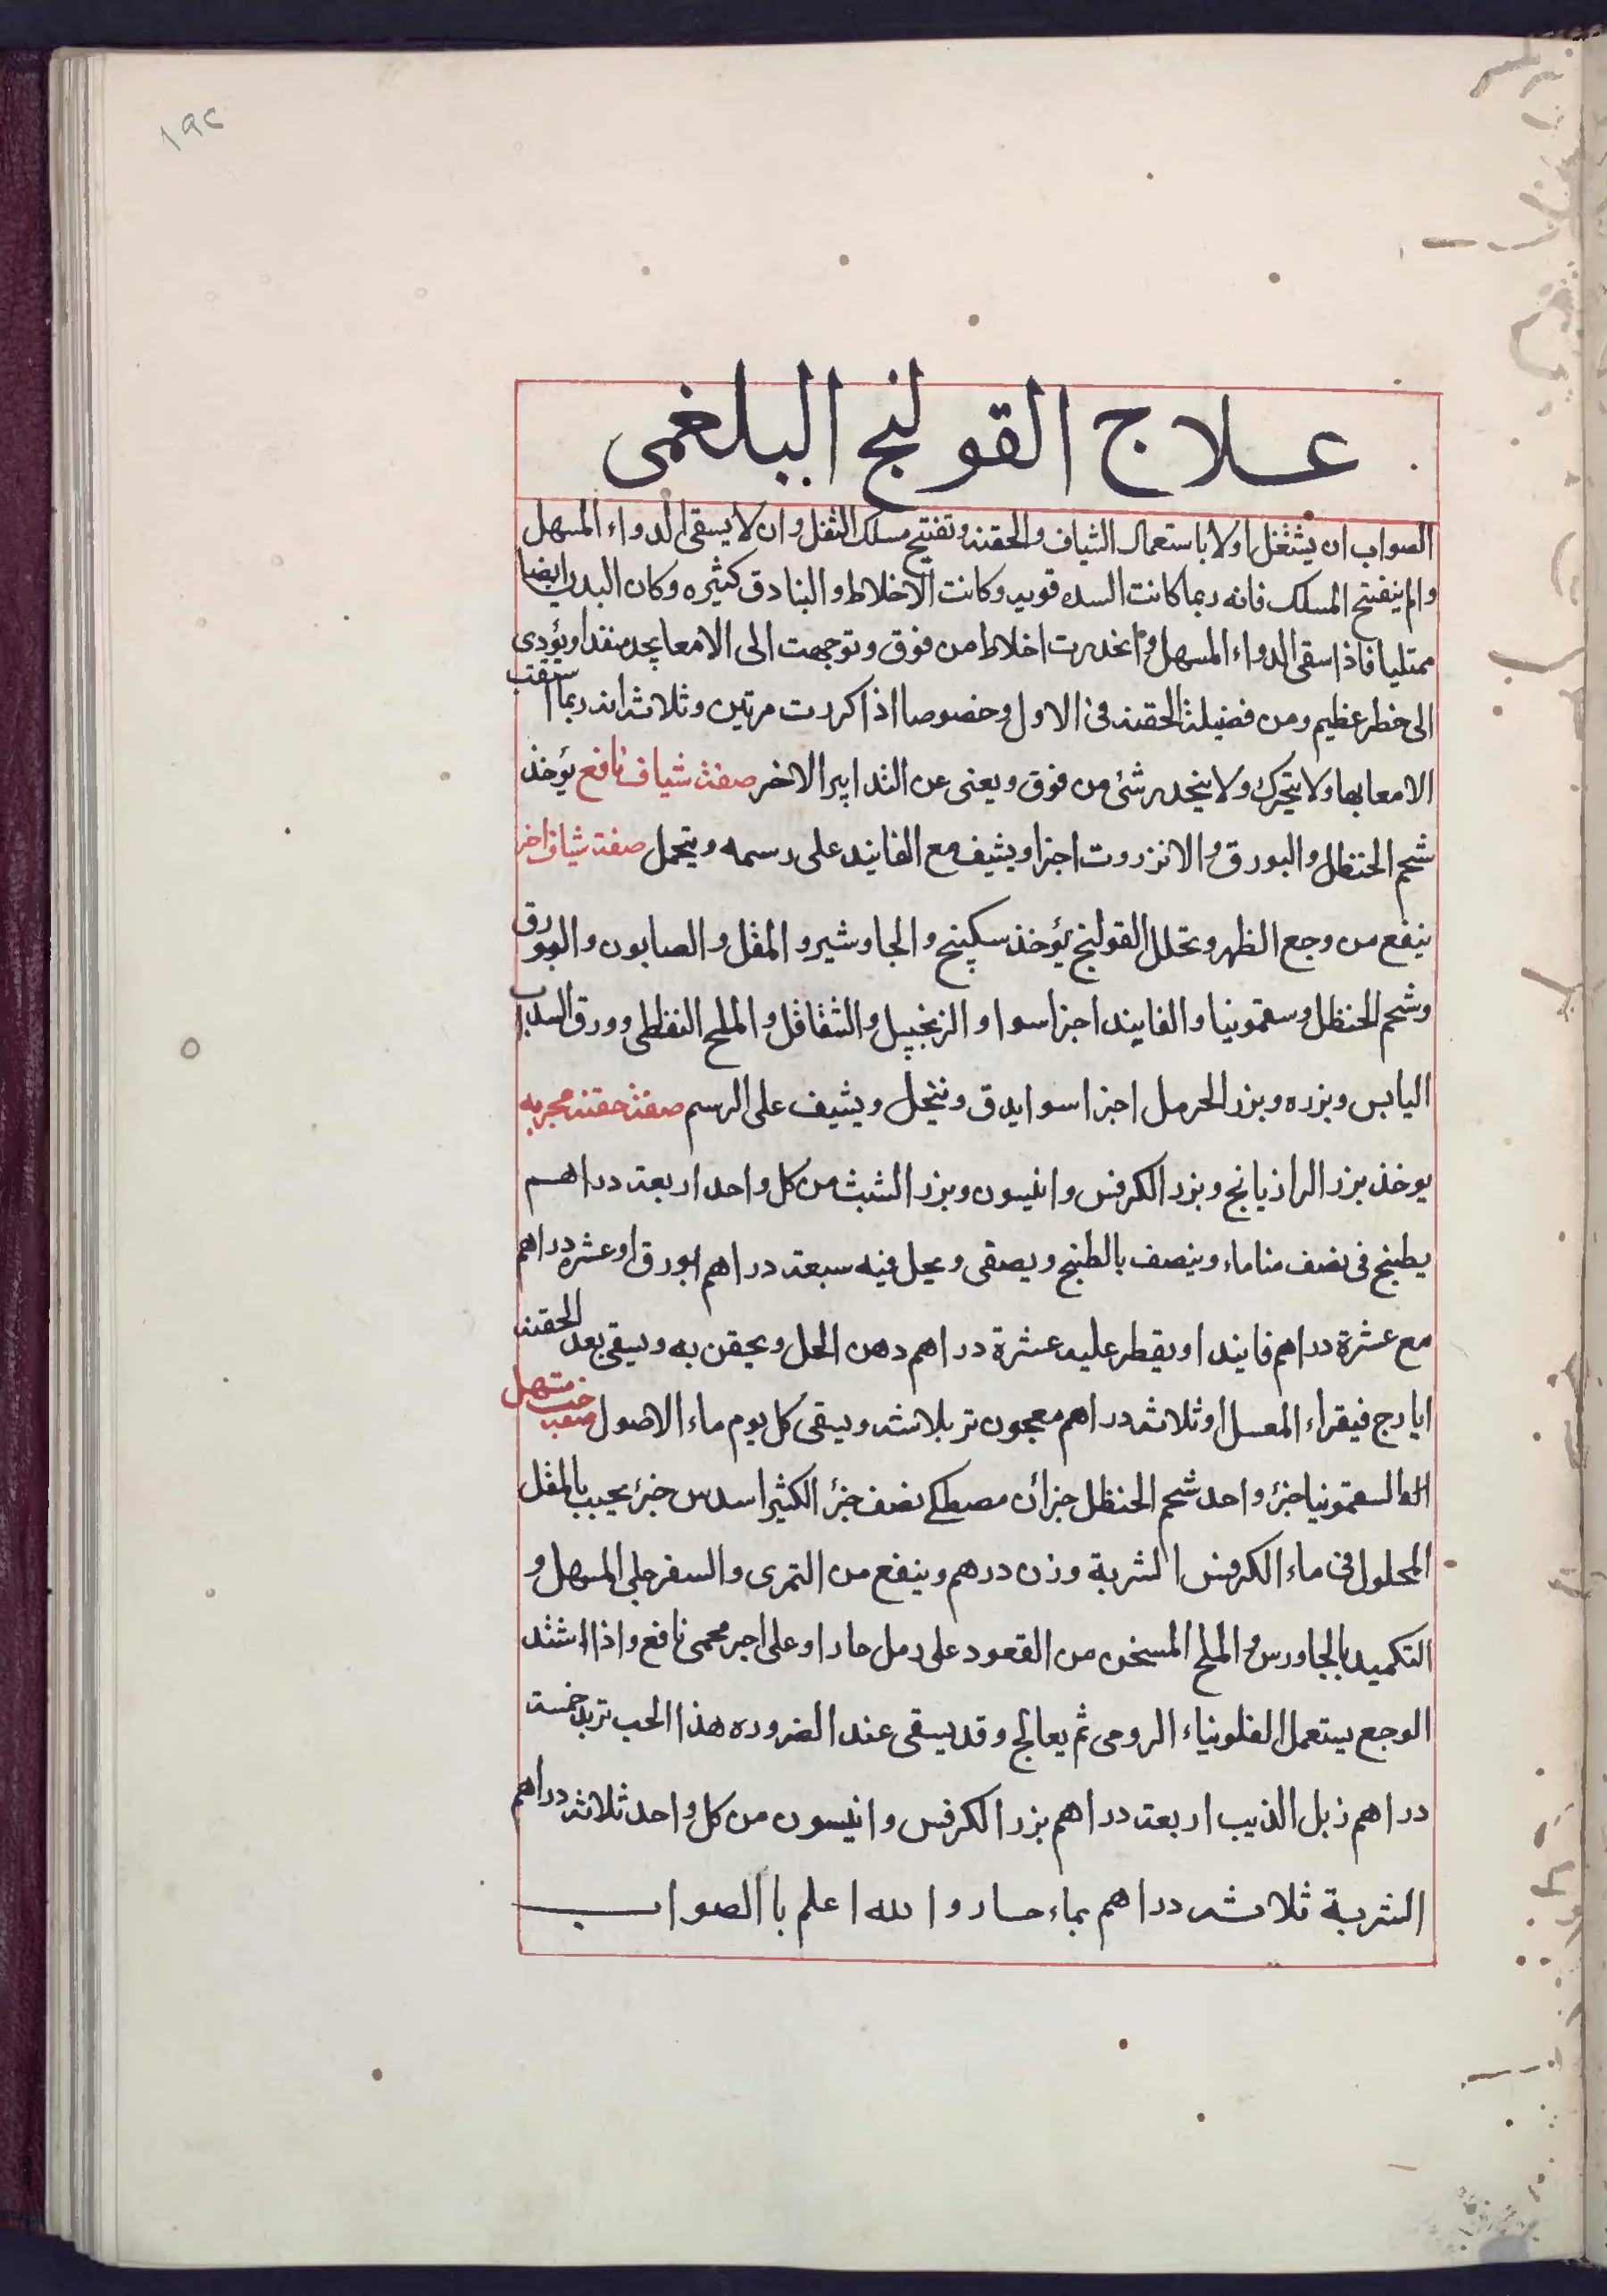 ١٩٢
علاج القولنج البلغمى
الصواب ان يشتغل اولا باستعمال الشياف والحقنه وتفتيح مسلك الثفل وان لا يسقى الدواء المسهل
والم ينفتح المسلك فانه ربما كانت السده قويه وكانت الاخلاط والبنادق كثيره وكان البدن ايضا
ممتليا فاذا سقى الدواء المسهل وانحدرت اخلاط من فوق وتوجهت الى الامعا يجد منفذا ويؤدى
الى خطر عظيم ومن فضيلة الحقنه فى الاول وخصوصا اذا كررت مرتين وثلاثه انه ربما استقت
الامعا بها ولا يتحرك ولا ينحدر شئ من فوق ويعنى عن التدابير الاخر صفة شياف نافع يؤخذ
شحم الحنظل والبورق والانزروت اجزا ويشيف مع الفانيد على رسمه ويتحمل صفة شياف اخر
ينفع من وجع الظهر وتحلل القولنج يؤخذ سكبينج والجاوشير والمقل والصابون والبورق
وشحم الحنظل وسقمونيا والفانيد اجزا سوا والزنجبيل والشقاقل والملح النفطى وورق السداب
اليابس وبزره وبزر الحرمل اجزا سوا يدق وينخل ويشيف على الرسم صفة حقنه مجربه
يوخذ بزر الرازيانج وبزر الكرفس وانيسون وبزر الشبث من كل واحد اربعة دراهم
يطبخ فى نصف منا ماء وينصف بالطبخ ويصفى ويحل فيه سبعة دراهم بورق او عشره دراهم
مع عشرة دراهم فانيد او يقطر عليه عشرة دراهم دهن الحل ويحقن به ويسقى بعد الحقنه
ايارج فيقراء المعسل او ثلاثه دراهم معجون تربلاثه ويسقى كل يوم ماء الاصول صفة حب مسهل
السقمونيا جزؤ واحد شحم الحنظل جزأن مصطكى نصف جزؤ الكثيرا سدس جزؤ يحبب بالمقل
المحلول فى ماء الكرفس الشربة وزن درهم وينفع من التمرى والسفرجلى المسهل و
التكميد بالجاورس والملح المسخن من القعود على رمل حار او على اجر محمى نافع واذا اشتد
الوجع يستعمل الفلونياء الرومى ثم يعالج وقد يسقى عند الضروره هذا الحب تربد خمسة
دراهم زبل الذيب اربعة دراهم بزر الكرفس وانيسون من كل واحد ثلاثه دراهم
الشربة ثلاثه دراهم بماء حار والله اعلم باالصواب